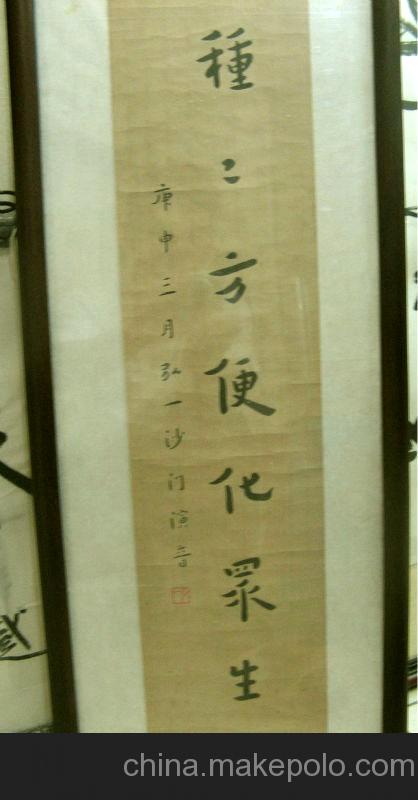 種〻方便化眾生
庚申三月弘一沙门演音
china.makepolo.com